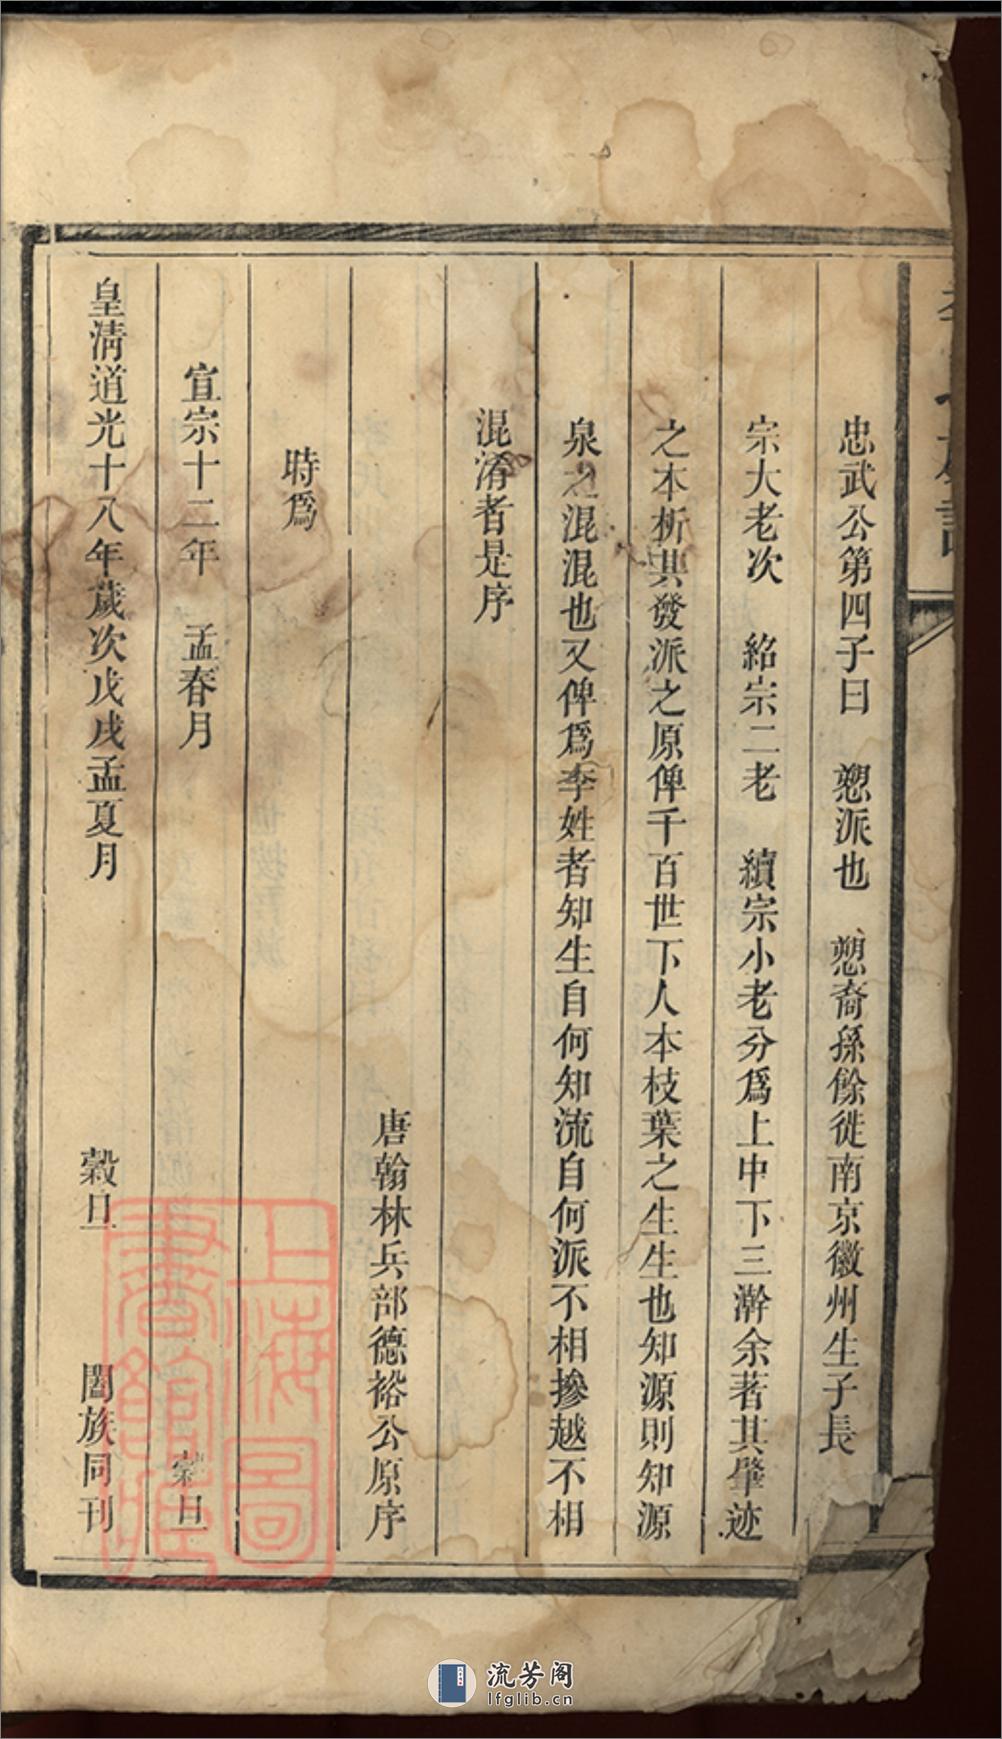 忠武公第四子曰 愬派也 愬裔孫餘徙南京徽州生子長
宗大老次 紹宗二老 續宗小老分為上中下三澣余著其肇迹
之本析其發派之原俾千百世下人本枝葉之生生也知源則知源
泉之混混也又俾爲李姓者知生自何知流自何派不相摻越不相
混淆者是序
唐翰林兵部德裕公原序
時爲
宣宗十二年 孟春月 榖旦
皇清道光十八年歲次戊戌孟夏月 榖旦 闔族同刊
上海圖書館藏
流芳阁
lfglib.cn